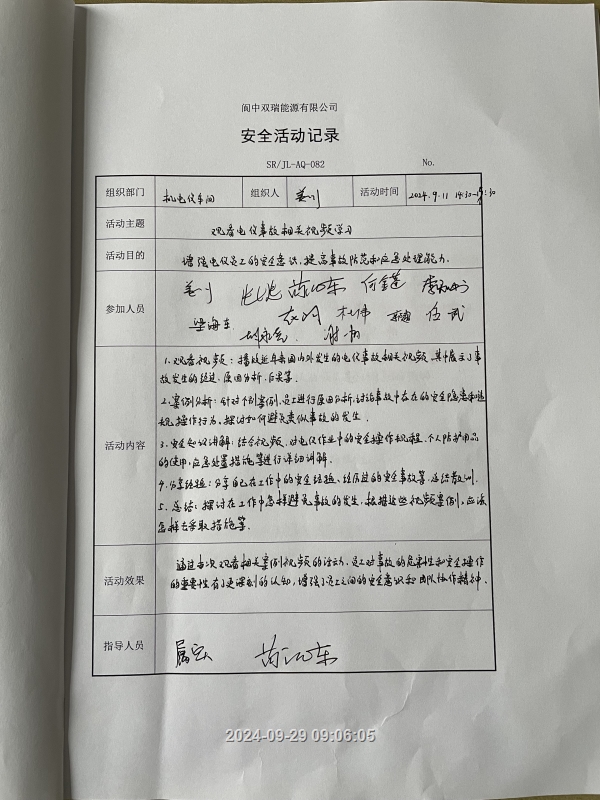 阆中双瑞能源有限公司
安全活动记录
SR/JL-AQ-082 No.
组织部门 机电仪车间 组织人 活动时间 2024.9.11 14:30-15:30
活动主题 观看电仪事故相关视频学习
活动目的 增强电仪员工的安全意识,提高事故防范和应急处理能力.
参加人员
梁海东 杜伟 伍武
活动内容
1.观看视频:播放近年来国内外发生的电仪事故相关视频,其中展示了事
故发生的经过、原因分析、后果等.
2.案例分析:针对个别案例,员工进行原因分析,讨论事故中存在的安全隐患和违
规操作行为,探讨如何避免类似事故的发生.
3.安全知识讲解:结合视频,对电仪作业中的安全操作规程、个人防护用品
的使用,应急处置措施等进行详细讲解.
4.分享经验:分享自己在工作中的安全经验、经历过的安全事故等,总结教训.
5.总结:探讨在工作中怎样避免事故的发生,根据这些视频案例,应该
怎样去采取措施等.
活动效果
通过本次观看相关案例视频的活动,员工对事故的危害性和安全操作
的重要性有了更深刻的认知,增强了员工之间的安全意识和团队协作精神.
指导人员
2024-09-29 09:06:05